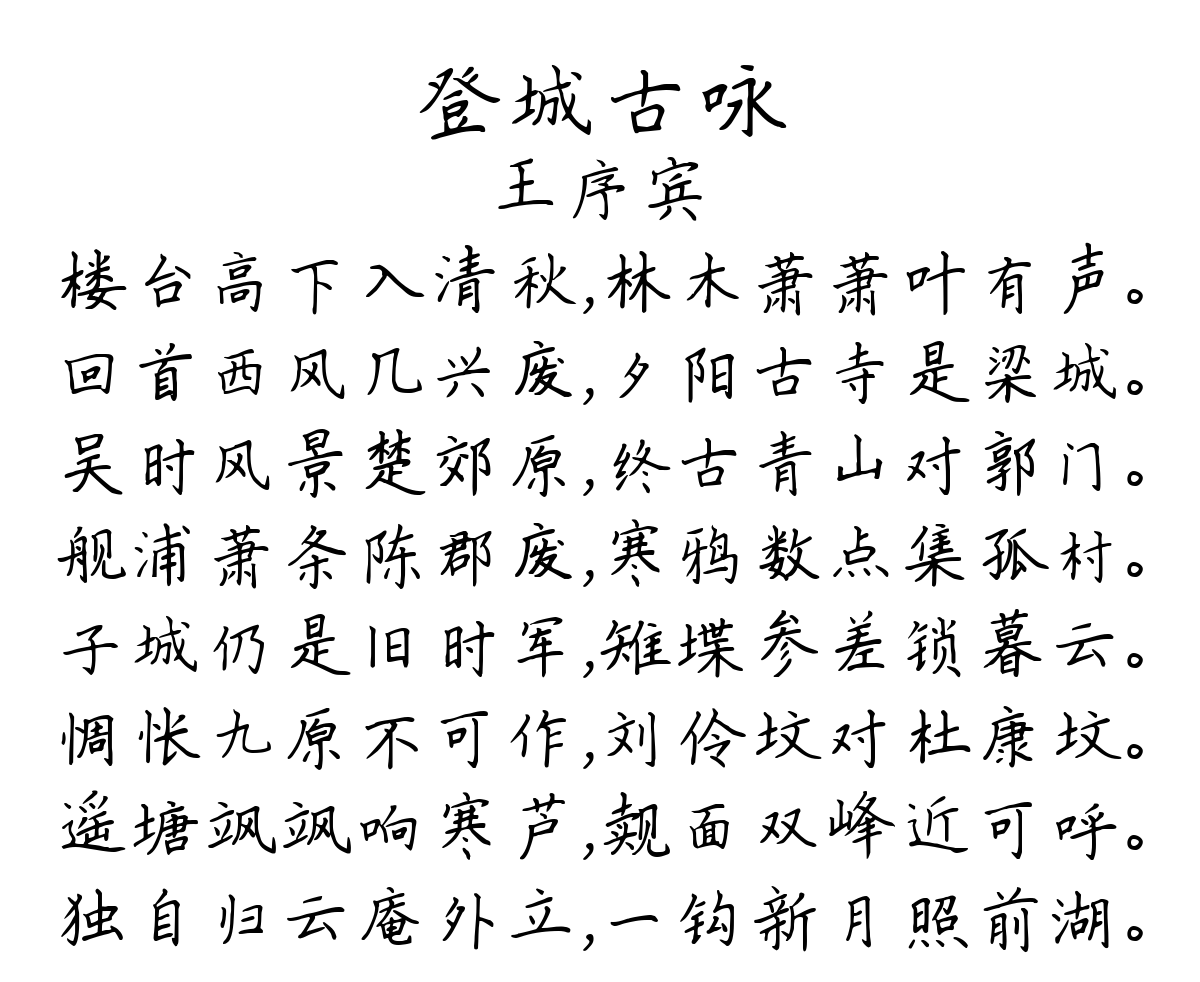 登城古咏
王序宾
楼台高下入清秋,林木萧萧叶有声。
回首西风几兴废,夕阳古寺是梁城。
吴时风景楚郊原,终古青山对郭门。
舰浦萧条陈郡废,寒鸦数点集孤村。
子城仍是旧时军,雉堞参差锁暮云。
惆怅九原不可作,刘伶坟对杜康坟。
遥塘飒飒响寒芦,觌面双峰近可呼。
独自归云庵外立,一钩新月照前湖。